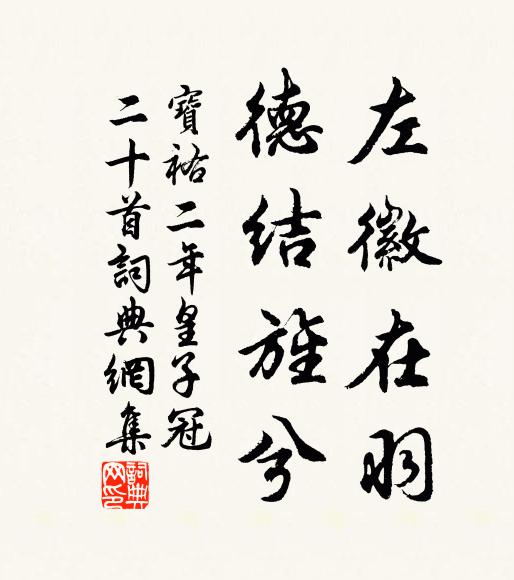 左徽在羽
德結旌兮
寶祐二年皇子冠
二十首詞典網集
詞典网印